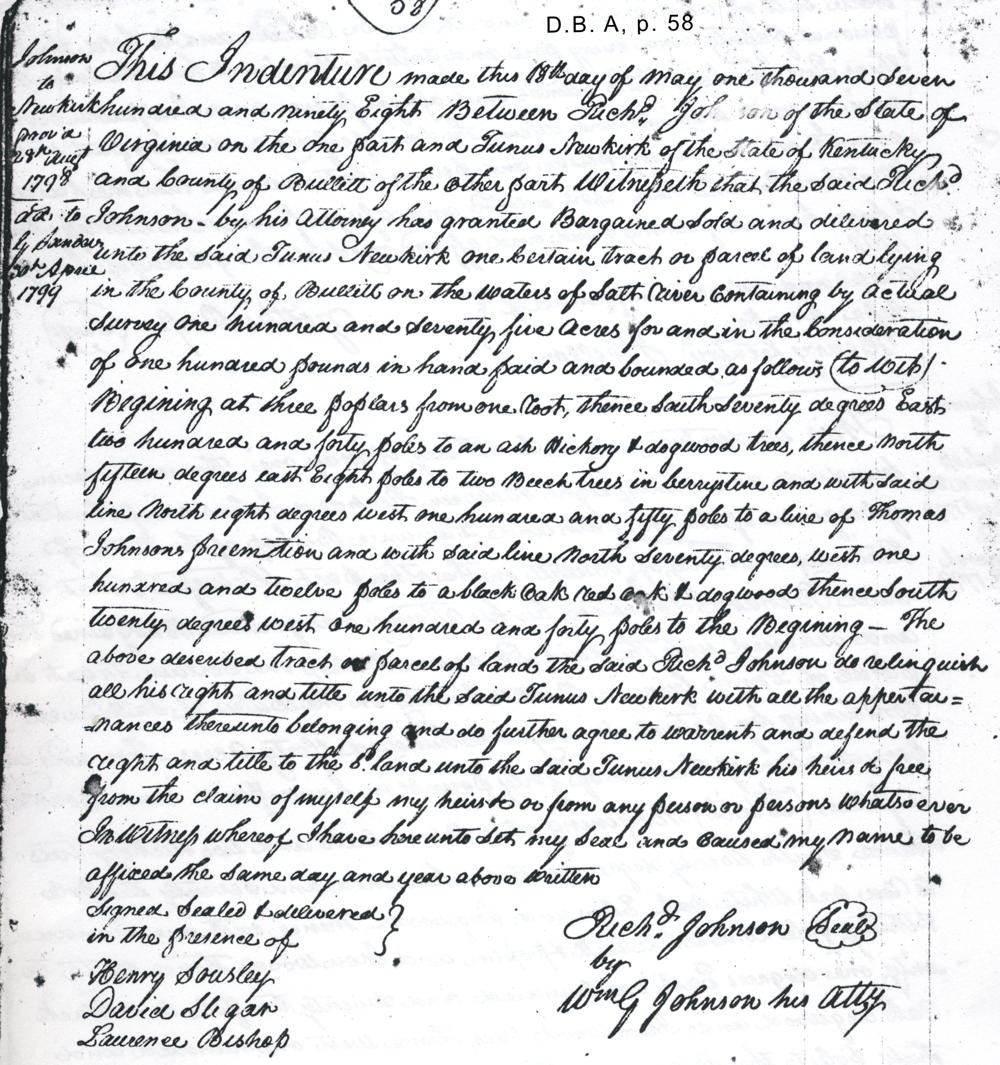 58
D.B. A, p. 58
Johnson
to
Newkirk
prov'd
28th Augt
1798
dd. to
30th April
1799
This Indenture made this 18th day of May one thousand Seven
hundred and ninety Eight Between Richd. Johnson of the State of
Virginia on the one part and Tunus Newkirk of the State of Kentucky
and County of Bullitt of the other part Witnesseth that the Said Richd
Johnson - by his Attorney has granted Bargained Sold and delivered
unto the Said Tunus Newkirk one Certain tract or parcel of land lying
in the County of Bullitt on the waters of Salt River Containing by actual
Survey one hundred and Seventy five Acres for and in the Consideration
of one hundred pounds in hand paid and bounded as follows (to wit)
Begining at three poplars from one Root, thence South Seventy degrees East
two hundred and forty poles to an ash Hickory & dogwood trees, thence North
fifteen degrees east Eight poles to two Beech trees in berrys line and with Said
line North eight degrees west one hundred and fifty poles to a line of Thomas
Johnsons preemtion and with Said line North Seventy degrees, west one
hundred and twelve poles to a black Oak red oak & dogwood thence South
twenty degrees west one hundred and forty poles to the Begining — The
above described tract or parcel of land the Said Richd Johnson do relinquish
all his right and title unto the Said Tunus Newkirk with all the appertai=
nances thereunto belonging and do further agree to warrent and defend the
right and title to the Sd. land unto the Said Tunus Newkirk his heirs & free
from the claim of myself my heirs & or from any person or persons whatsoever
In Witness whereof I have here unto Set my Seal and Caused my Name to be
affixed the Same day and year above written
Signed Sealed & delivered }
in the presence of
Henry Sousley
David Slegar
Laurence Bishop
Richd. Johnson Seal
by
Wm G Johnson his Atty